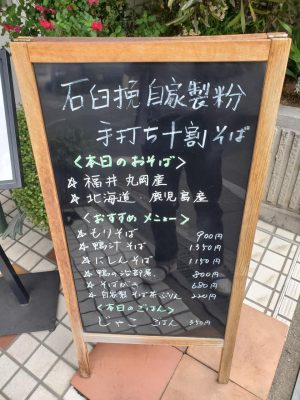 石臼挽自家製粉
手打ち十割そば
<本日のおそば>
☆ 福井 丸岡産
☆ 北海道・鹿児島産
<おすすめ メニュー>
☆ もりそば 900円
☆ 鴨汁そば 1350円
☆ にしんそば 1150円
☆ 鴨の治部煮 800円
☆ そばがき 680円
☆ 自家製 そば茶ぷりん 220円
<本日のごはん>
じゃこ ごはん 350円